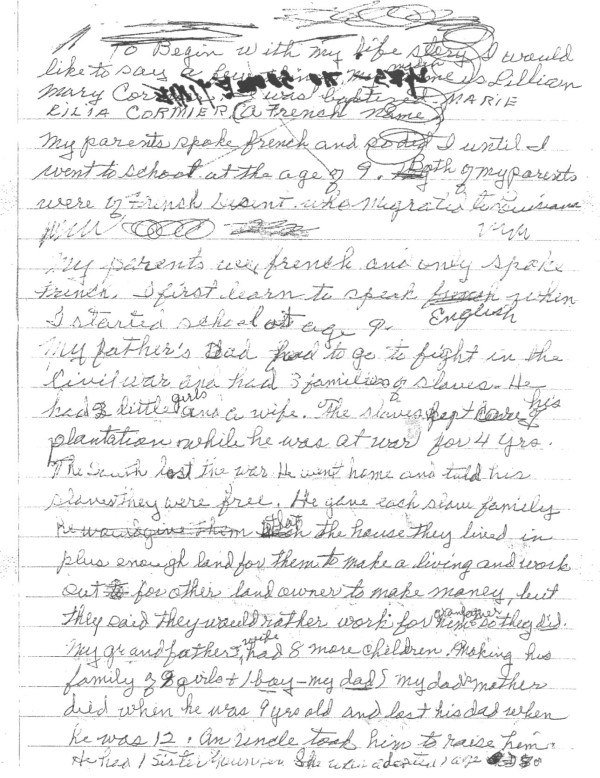 To Begin with my life story I would
like to say a few things. My maiden name is Lillian
Mary Cor was baptized - MARIE
LILIA CORMIER (A French Name)
My parents spoke french and so did I until I
went to school at the age of 9. Both of my parents
were of French who migrated to Louisiana
My parents were french and only spoke
French. I first learn to speak french when
English
I started school at age 9.
My father's Dad had to go to fight in the
Civil War and had 3 families of slaves. He
had 2 little girls and a wife. The slaves kept care of his
plantation while he was at war for 4 yrs.
The South lost the war. He went home and told his
slaves they were free. He gave each slave family
he would give them that the house they lived in
plus enough land for them to make a living and work
out for other land owner to make money, but
they said they would rather work for him grandfather so they did.
My grandfather's wife had 8 more children. Making his
family of 9 girls + 1 boy - my dad. My dad's mother
died when he was 9 yrs old and lost his dad when
he was 12. An uncle took him to raise him.
He had 1 sister younger She was adopted age